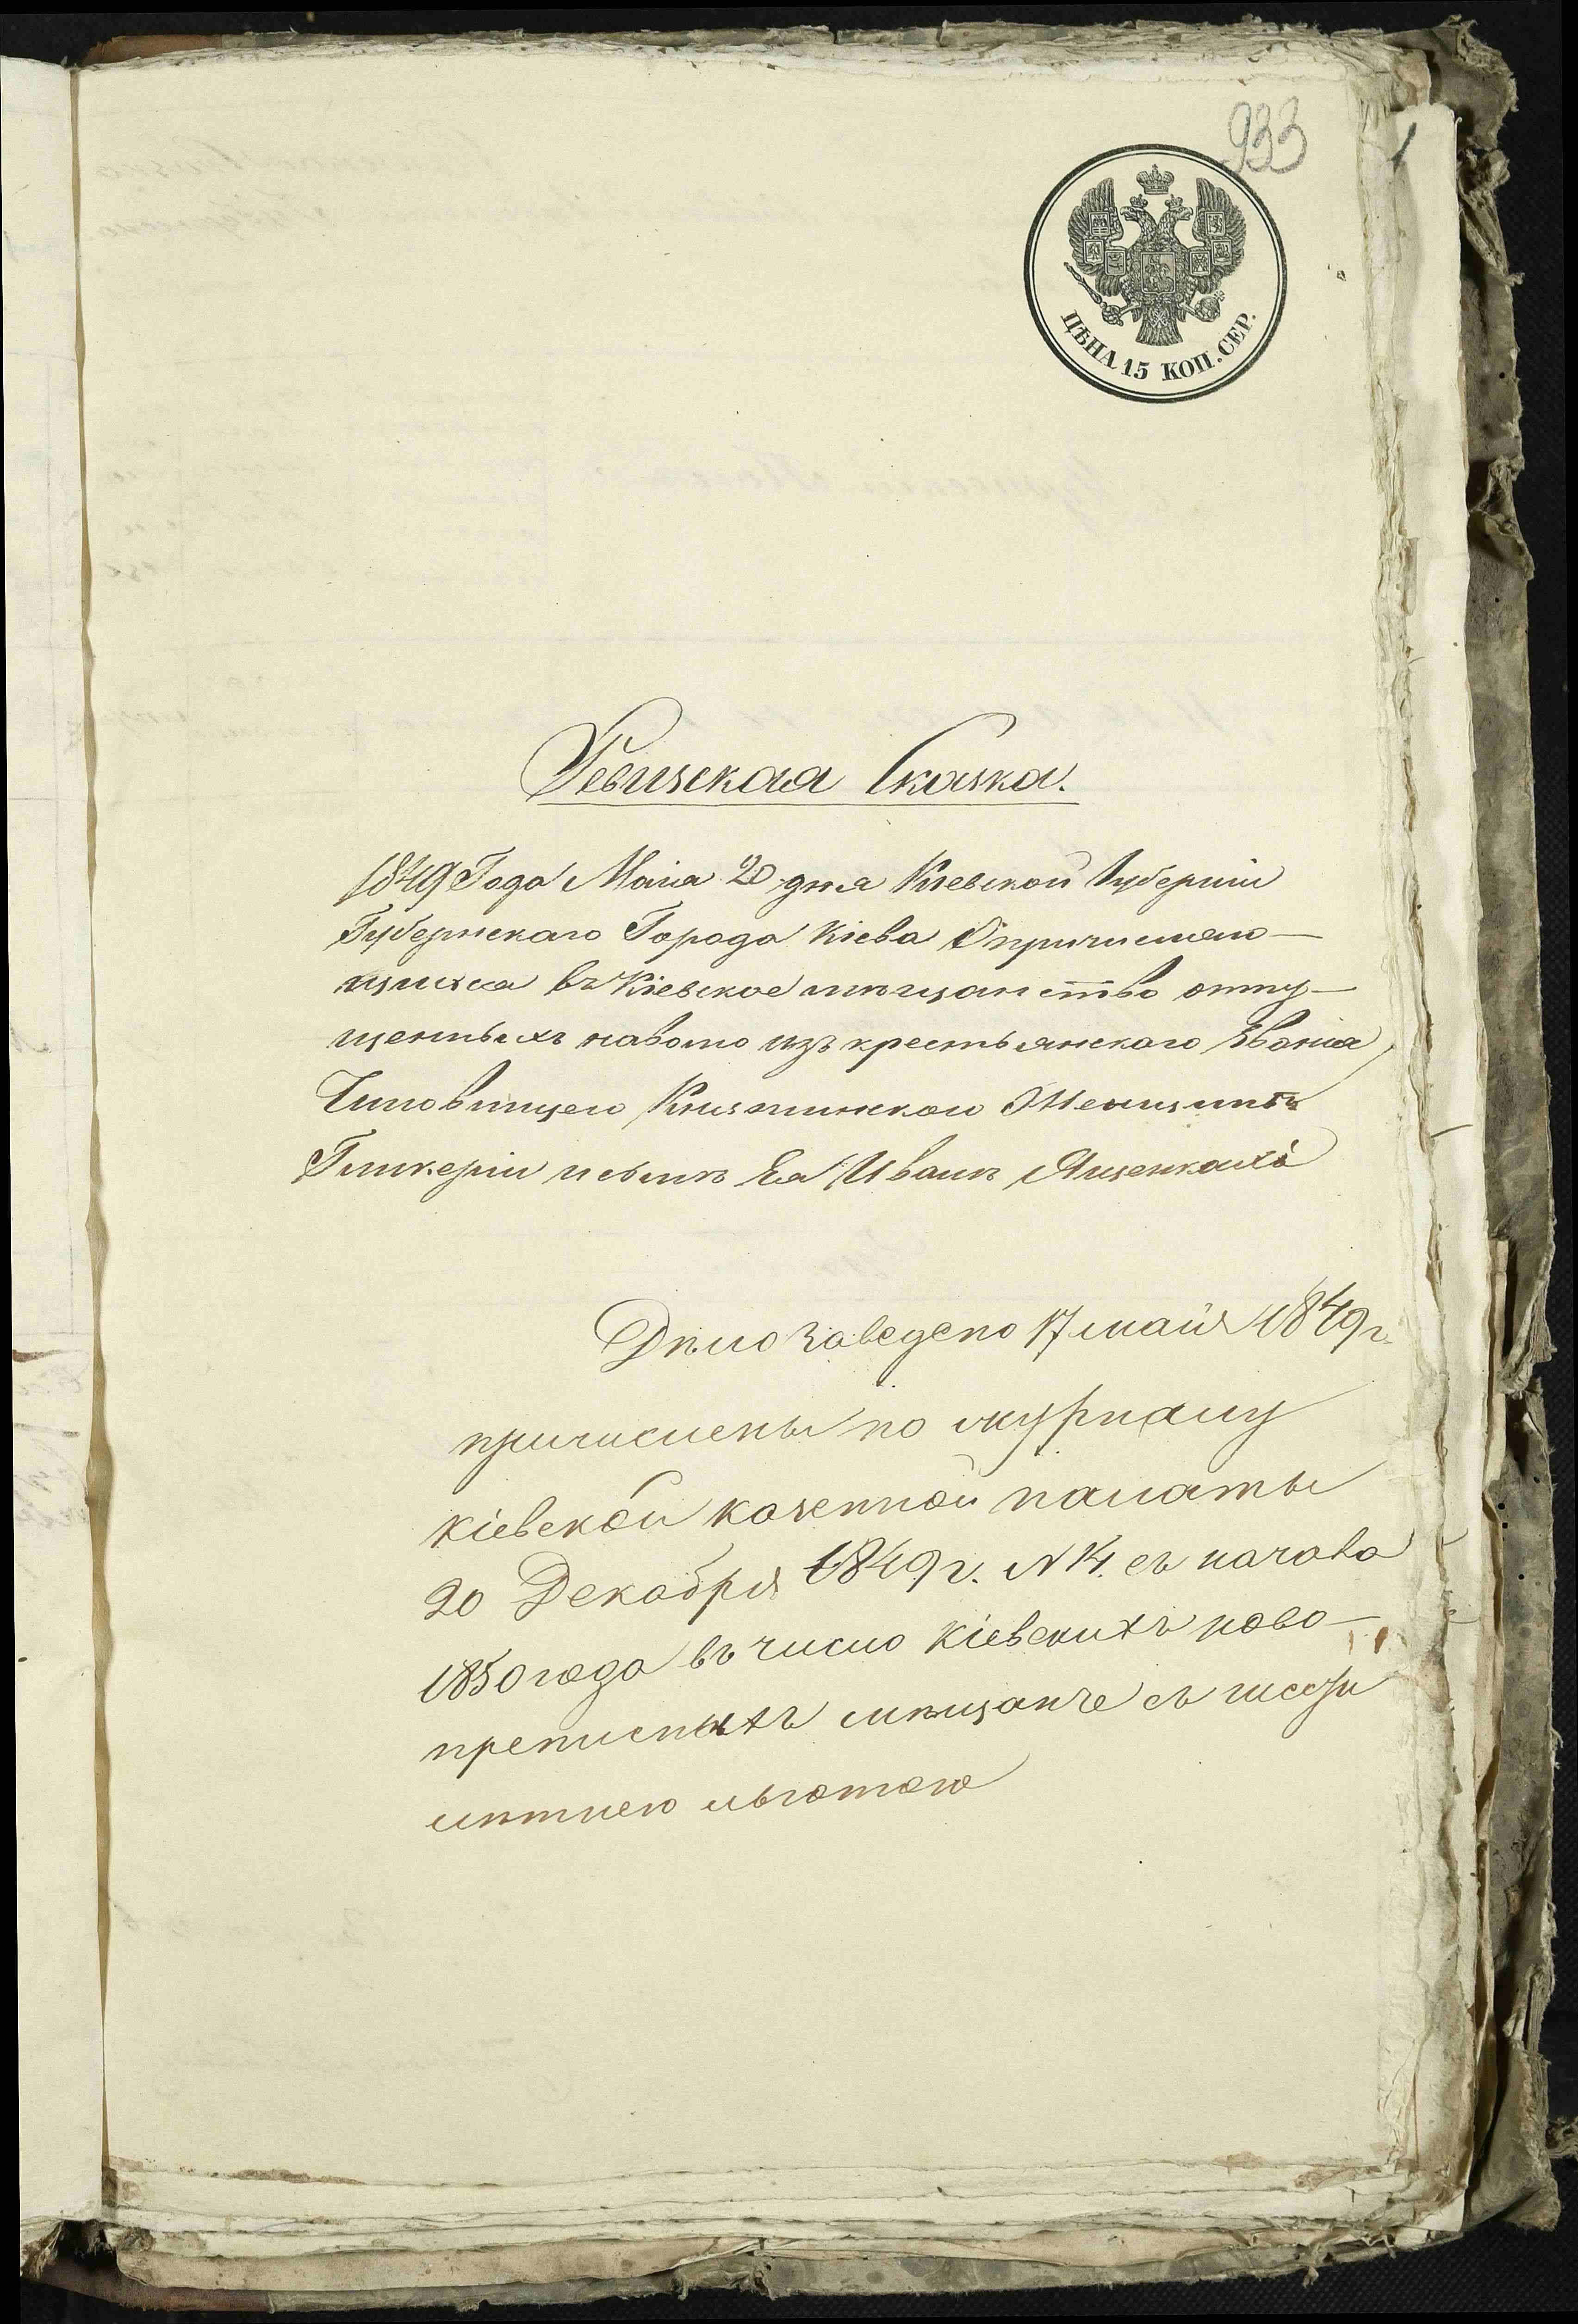 933
1
ЦѢНА 15 КОП. СЕР.
Ревизская Сказка.
1849 Года Маія 20 дня Кіевской Губерніи
Губернскаго Города Кіева О причисляю-
щихся въ Кіевское мѣщанство отпу-
щенныхъ наволю изъ крестьянскаго Званія,
Чиновницею Женщинѣ
Гликеріи и сынѣ Ея Иванѣ Ященкахъ
Дѣло заведено 17 маія 1849 г.
причислены по журналу
кіевской казенной палаты
20 Декабря 1849 г. N 14. съ начала
1850 года въ число кіевскихъ ново-
преписныхъ мѣщанъ съ шести
лѣтнею льготою